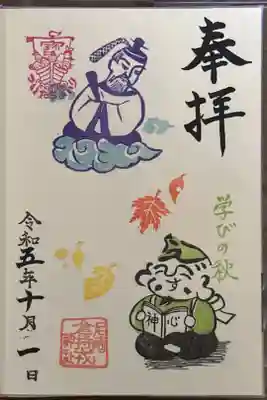 奉拝
学びの秋
心
神
令和五年十月一日